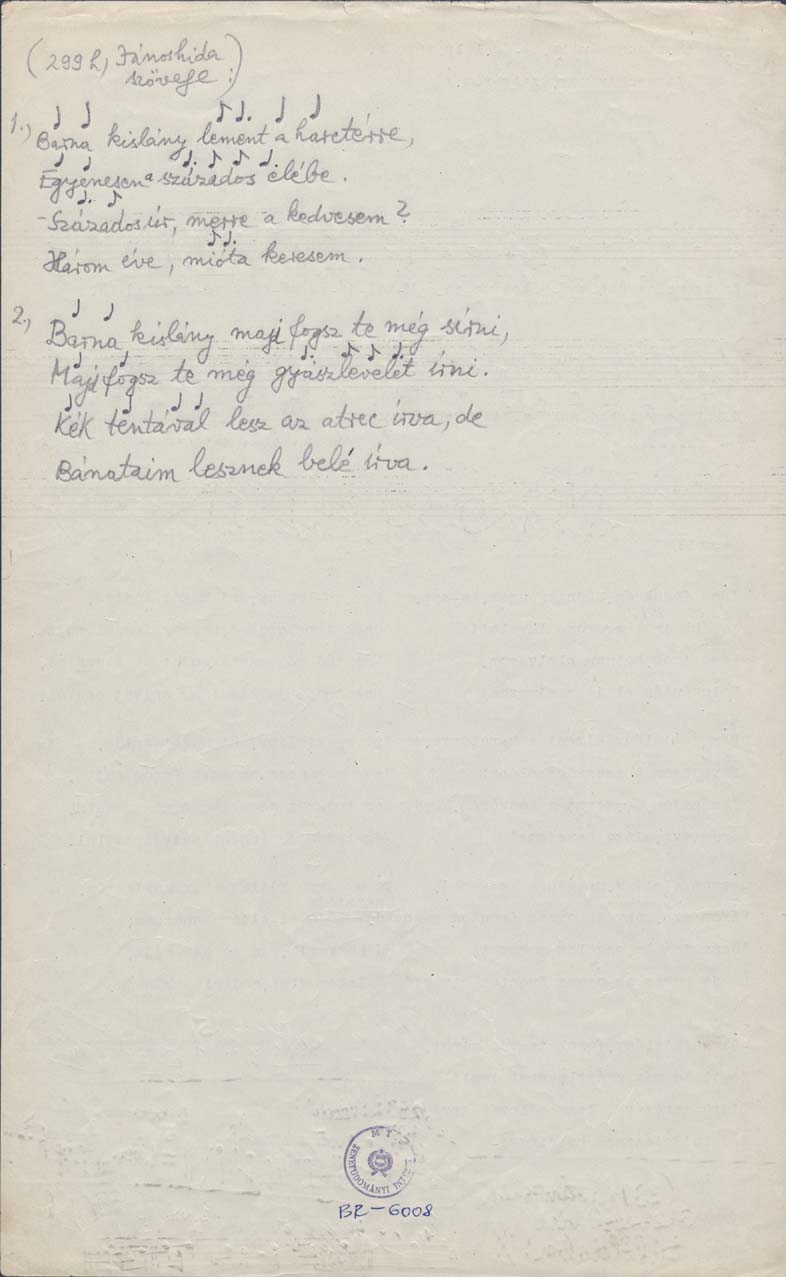 (299 h, Jánoshida
szövege:)
1.) Barna kislány lement a harctérre,
Egyenesen a százados elébe.
- Százados úr, merre a kedvesem?
Három éve, mióta keresem.
2.) Barna kislány maji fogsz te még sírni,
Maji fogsz te még gyászlevelet írni.
Kék tentával lesz az atrec írva, de
Bánataim lesznek belé írva.
MT
ZENETUDOMÁNYI INTÉZ
BR-6008